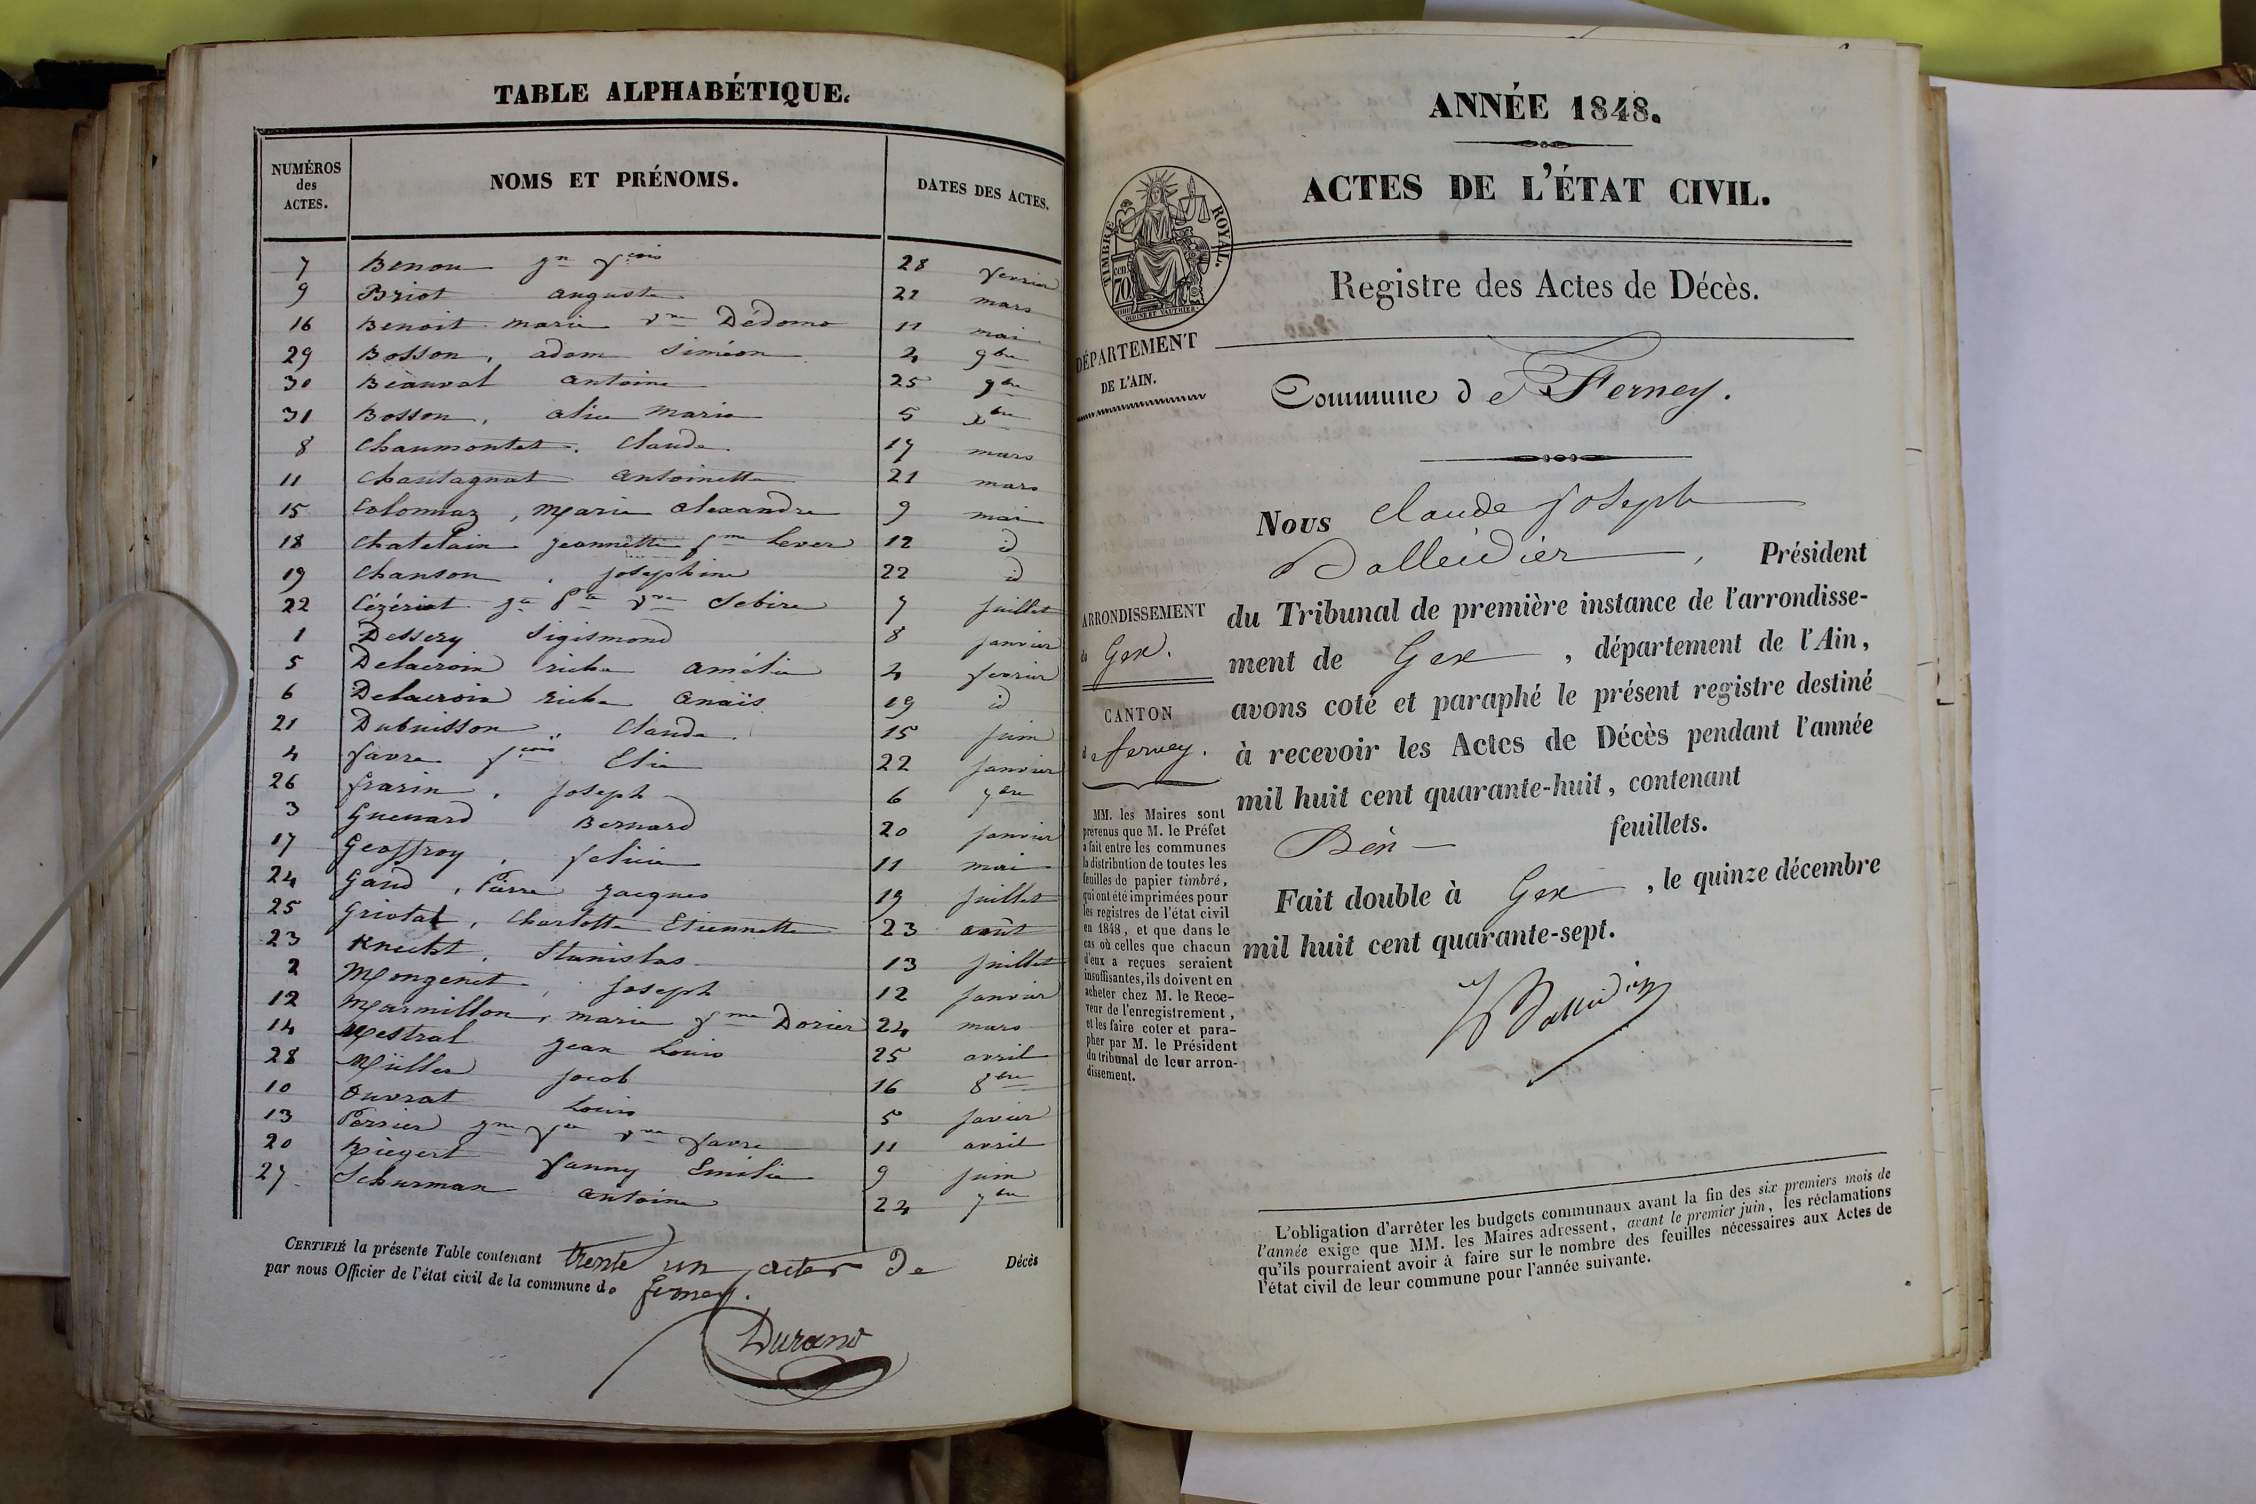 TABLE ALPHABÉTIQUE.
NUMÉROS des ACTES. NOMS ET PRÉNOMS. DATES DES ACTES.
7 Benou jn fcois 28 fevrier
9 Briot auguste 22 mars
16 Benoit marie vve Dédomo 11 mai
29 Bosson, adam Siméon 4 9bre
30 Beauval antoine 25 9bre
31 Bosson, alice marie 5 xbre
8 Chaumontet. Claude 17 mars
11 Chautagnat antoinette 21 mars
15 Colommaz, Marie alexandre 9 mai
18 Chatelain jeannette fme Lever 12 id
19 Chanson, josephine 22 id
22 Cézériat vve Sebire 7 juillet
1 Dessery Sigismond 8 janvier
5 Delacroix riche amélie 4 fevrier
6 Delacroix riche anaïs 19 id
21 Dubuisson, Claude 15 juin
4 favre fcois Elie 22 janvier
26 frarin, joseph 6 7bre
3 Guenard Bernard 20 janvier
17 Geoffroy, felicie 11 mai
24 Gand, Pierre jacques 19 juillet
25 Griotat, Charlotte Etiennette 23 août
23 Knecht, Stanislas 13 juillet
2 Mongenet, joseph 12 janvier
12 Marmillon, marie fme Dorier 24 mars
14 Mestral jean Louis 25 avril
28 Müller jacob 16 8bre
10 Ouvrat Louis 5 javier
13 Persier vve favre 11 avril
20 Riegert fanny Emilie 9 juin
27 Schurman antoine 24 7bre
CERTIFIÉ la présente Table contenant trente un actes de Décès
par nous Officier de l'état civil de la commune de ferney.
Durand
ANNÉE 1848.
ACTES DE L'ÉTAT CIVIL.
TIMBRE ROYAL.
70 cen
Registre des Actes de Décès.
DÉPARTEMENT
DE L'AIN.
Commune de Ferney.
ARRONDISSEMENT
de Gex.
CANTON
de ferney.
MM. les Maires sont
prévenus que M. le Préfet
a fait entre les communes
la distribution de toutes les
feuilles de papier timbré,
qui ont été imprimées pour
les registres de l'état civil
en 1848, et que dans le
cas où celles que chacun
d'eux a reçues seraient
insuffisantes, ils doivent en
acheter chez M. le Rece-
veur de l'enregistrement,
et les faire coter et para-
pher par M. le Président
du tribunal de leur arron-
dissement.
Nous Claude joseph
Balleidier, Président
du Tribunal de première instance de l'arrondisse-
ment de Gex, département de l'Ain,
avons coté et paraphé le présent registre destiné
à recevoir les Actes de Décès pendant l'année
mil huit cent quarante-huit, contenant
feuillets.
Fait double à Gex, le quinze décembre
mil huit cent quarante-sept.
Balleidier
L'obligation d'arrêter les budgets communaux avant la fin des six premiers mois de
l'année exige que MM. les Maires adressent, avant le premier juin, les réclamations
qu'ils pourraient avoir à faire sur le nombre des feuilles nécessaires aux Actes de
l'état civil de leur commune pour l'année suivante.